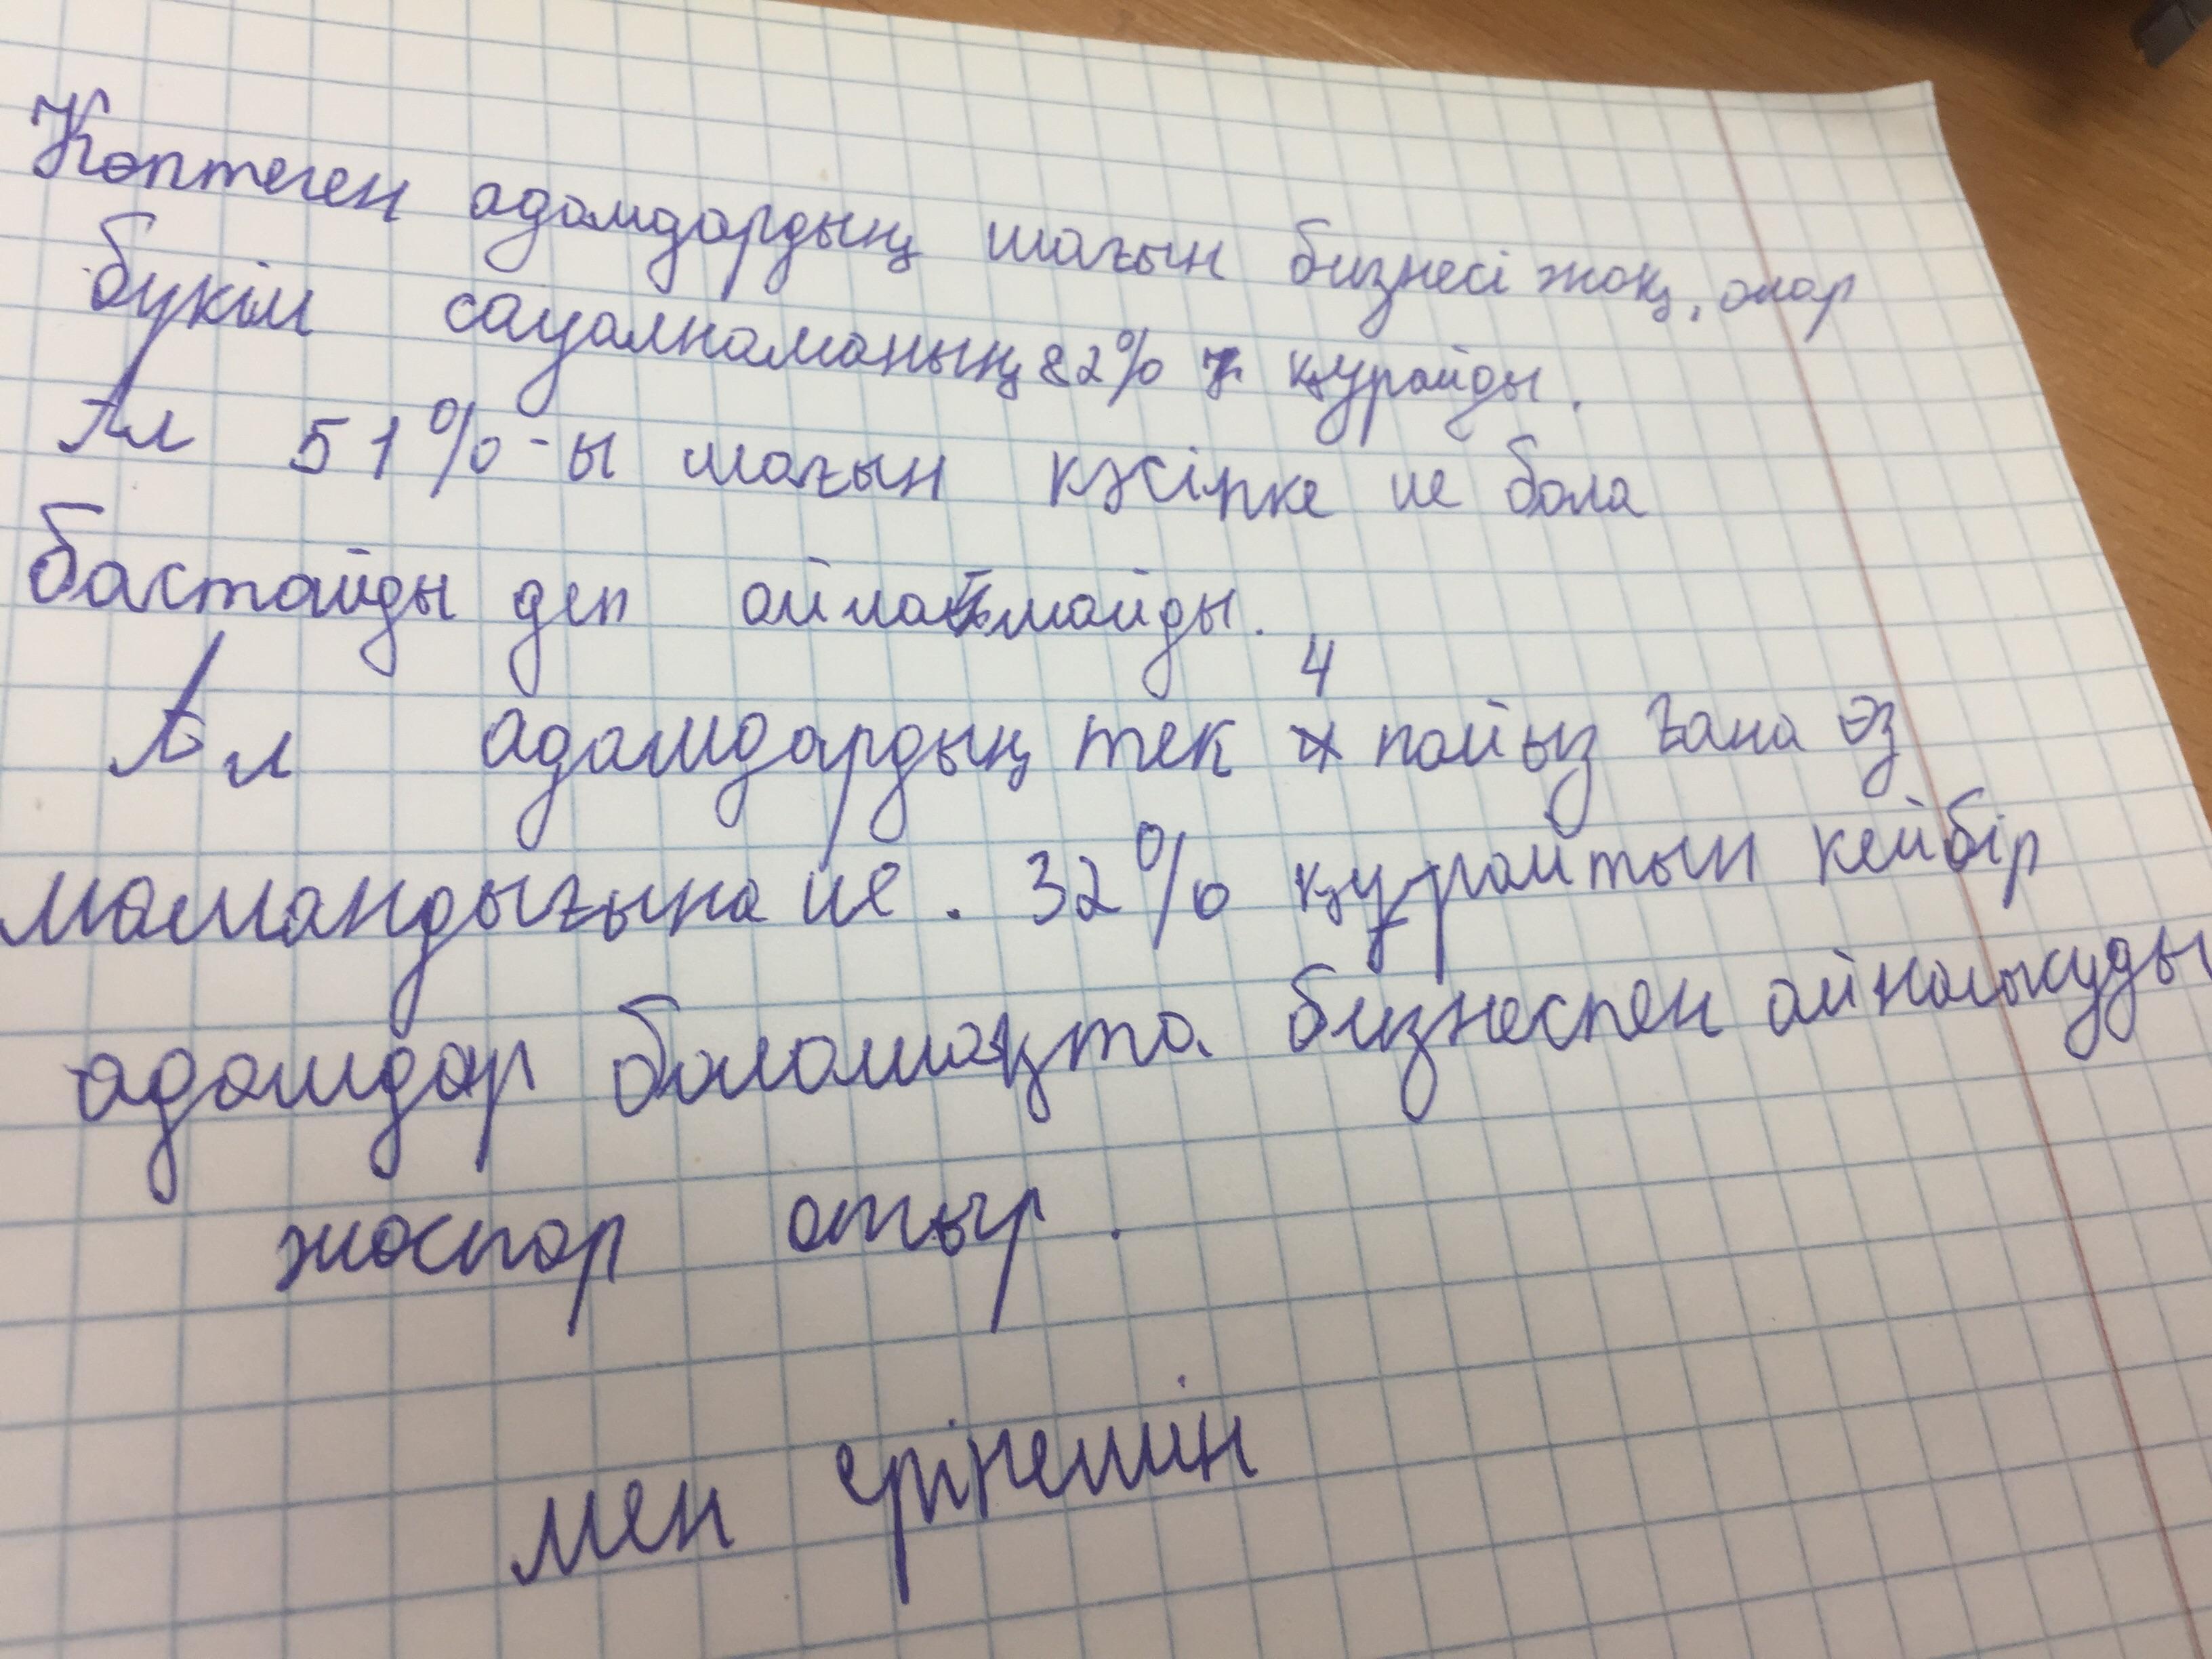 Көптеген адамдардың шағын бизнесі жоқ, олар
бүкіл сауалнаманың 82% құрайды.
Ал 51%-ы шағын кәсіпке ие бола
бастайды деп ойламайды.
Ал адамдардың тек 4 пайыз ғана өз
мамандығына ие. 32% құрайтын кейбір
адамдар болашақта бизнеспен айналысуды
жоспар отыр.
мен ерінемін